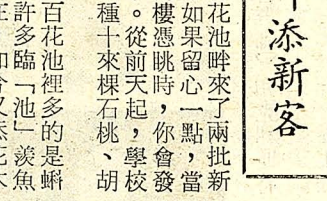 添新客
花池畔來了兩批新
如果留心一點，當
樓憑眺時，你會發
。從前天起，學校
種十來棵石桃、胡
百花池裡多的是蝌
許多臨「池」羨魚